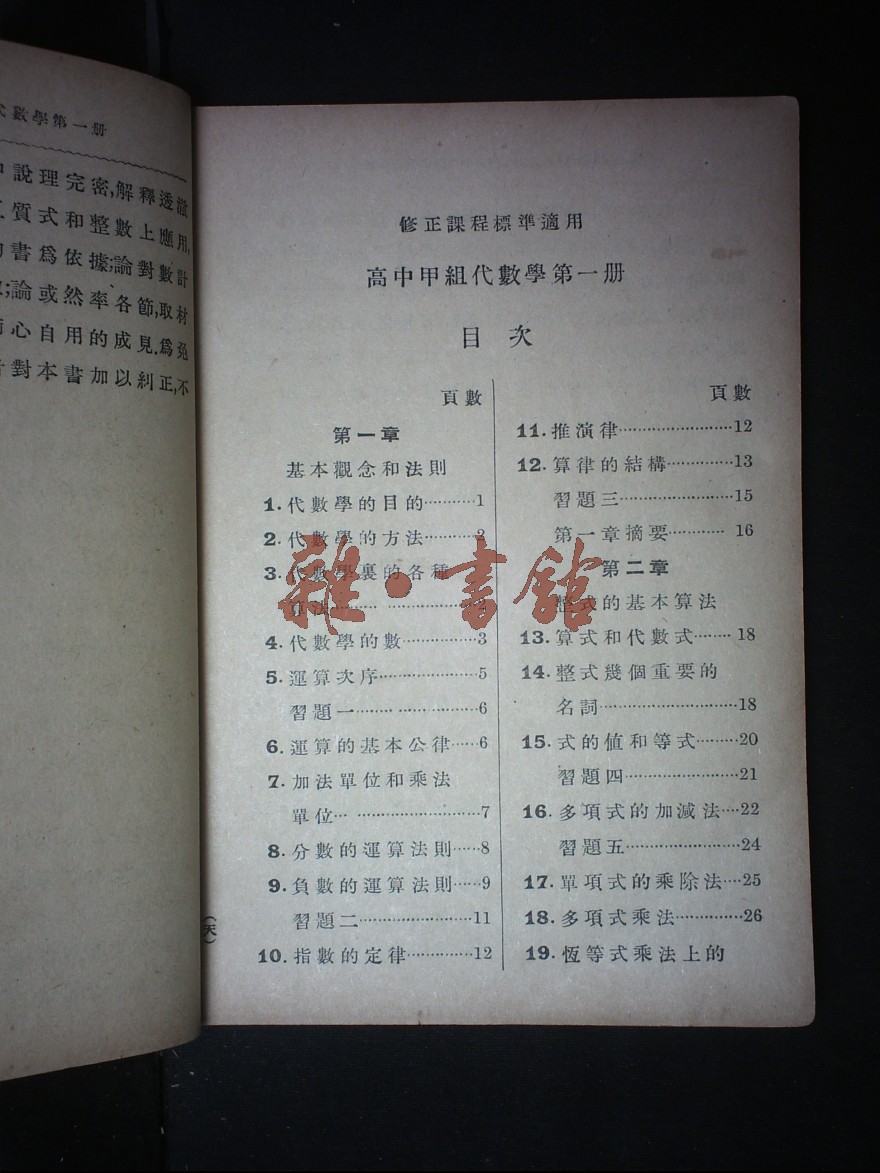 代數學第一册
說理完密,解釋透澈
質式和整數上應用,
書爲依據;論對數計
;論或然率各節,取材
心自用的成見.爲免
對本書加以糾正,不
修正課程標準適用
高中甲組代數學第一册
目次
頁數
第一章
基本觀念和法則
1.代數學的目的··········1
2.代數學的方法··········2
3.代數學裏的各種
算法··········2
4.代數學的數··········3
5.運算次序··········5
習題一··········6
6.運算的基本公律·····6
7.加法單位和乘法
單位··········7
8.分數的運算法則·····8
9.負數的運算法則·····9
習題二··········11
10.指數的定律··········12
(天)
頁數
11.推演律··········12
12.算律的結構··········13
習題三··········15
第一章摘要··········16
第二章
整式的基本算法
13.算式和代數式·····18
14.整式幾個重要的
名詞··········18
15.式的値和等式·····20
習題四··········21
16.多項式的加減法···22
習題五··········24
17.單項式的乘除法···25
18.多項式乘法··········26
19.恆等式乘法上的
雜·書館